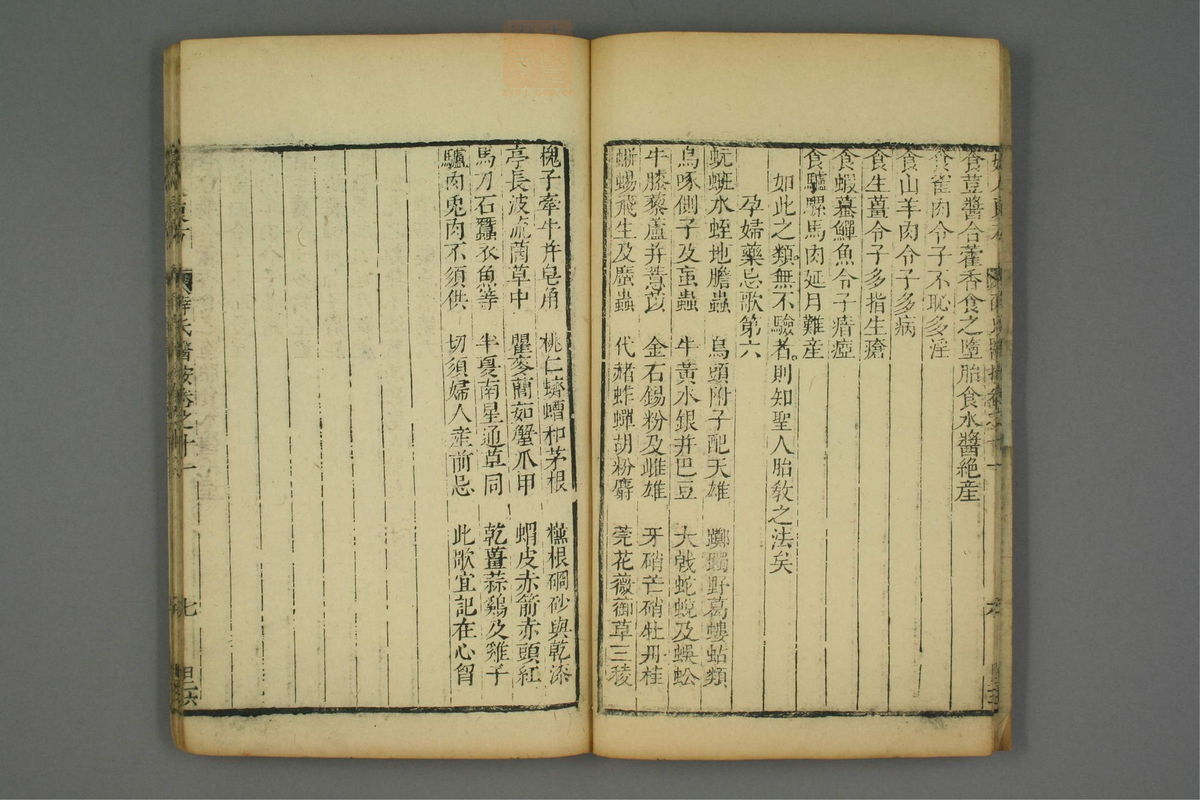 食荳醬合藿香食之墮胎食水醬絶産
食雀肉令子不恥多淫
食山羊肉令子多病
食生薑令子多指生瘡
食蝦蟇鱓魚令子瘖瘂
食驢騾馬肉延月難産
如此之類無不驗者。則知聖人胎敎之法矣
孕婦藥忌歌第六
蚖蜓水蛭地膽蟲 烏頭附子配天雄 躑躅野葛螻蛄類
烏啄側子及䖟蟲 牛黃水銀并巴豆 大戟蛇蛻及蜈蚣
牛膝藜蘆并薏苡 金石錫粉及雌雄 牙硝芒硝牡丹桂
蜥蜴飛生及䗪蟲 代赭蚱蟬胡粉麝 芫花薇蘅草三稜
槐子牽牛并皂角 桃仁蠐螬和茅根 欓根硇砂與乾漆
亭長波流茵草中 瞿麥䕡茹蟹爪甲 蝟皮赤箭赤頭紅
馬刀石蠶衣魚等 半夏南星通草同 乾薑蒜雞及雞子
驢肉兎肉不須供 切須婦人産前忌 此歌宜記在心胷
薛氏醫按卷之廿一
七